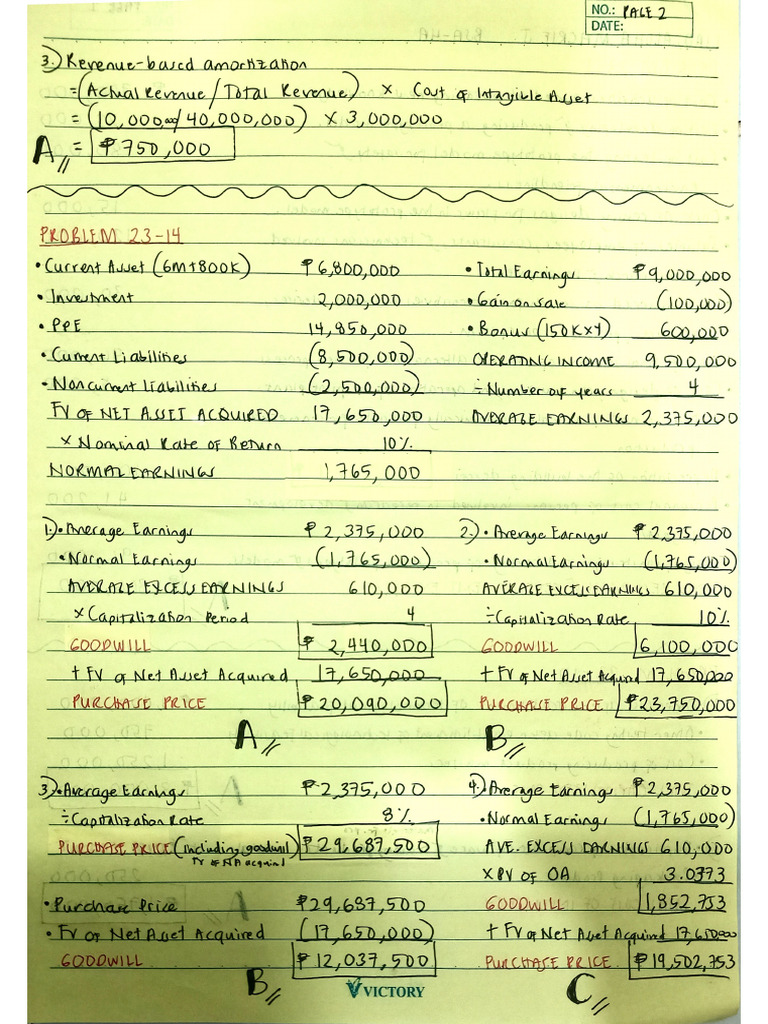 NO.: PAGE 2
DATE:
3.) Revenue-based amortization
= (Actual Revenue / Total Revenue) x Cost of Intangible Asset
= (10,000,000/40,000,000) x 3,000,000
A = ₱750,000
PROBLEM 23-14
• Current Asset (6M+800K) ₱6,800,000
• Investment 2,000,000
• PPE 14,850,000
• Current Liabilities (8,500,000)
• Noncurrent Liabilities (2,500,000)
FV OF NET ASSET ACQUIRED 17,650,000
x Nominal Rate of Return 10%
NORMAL EARNINGS 1,765,000
• Total Earnings ₱9,000,000
• Gain on sale (100,000)
• Bonus (150K x 4) 600,000
OPERATING INCOME 9,500,000
÷ Number of years 4
AVERAGE EARNINGS 2,375,000
1.) • Average Earnings ₱2,375,000
• Normal Earnings (1,765,000)
AVERAGE EXCESS EARNINGS 610,000
x Capitalization Period 4
GOODWILL ₱2,440,000
+ FV of Net Asset Acquired 17,650,000
PURCHASE PRICE ₱20,090,000
A
2.) • Average Earnings ₱2,375,000
• Normal Earnings (1,765,000)
AVERAGE EXCESS EARNINGS 610,000
÷ Capitalization Rate 10%
GOODWILL 6,100,000
+ FV of Net Asset Acquired 17,650,000
PURCHASE PRICE ₱23,750,000
B
3.) • Average Earnings ₱2,375,000
÷ Capitalization Rate 8%
PURCHASE PRICE (including goodwill ₱29,687,500
FV of NA acquired)
• Purchase Price ₱29,687,500
• FV of Net Asset Acquired (17,650,000)
GOODWILL ₱12,037,500
B
4.) • Average Earning ₱2,375,000
• Normal Earning (1,765,000)
AVE. EXCESS EARNINGS 610,000
x PV OF OA 3.0373
GOODWILL 1,852,753
+ FV of Net Asset Acquired 17,650,000
PURCHASE PRICE ₱19,502,753
C
VICTORY